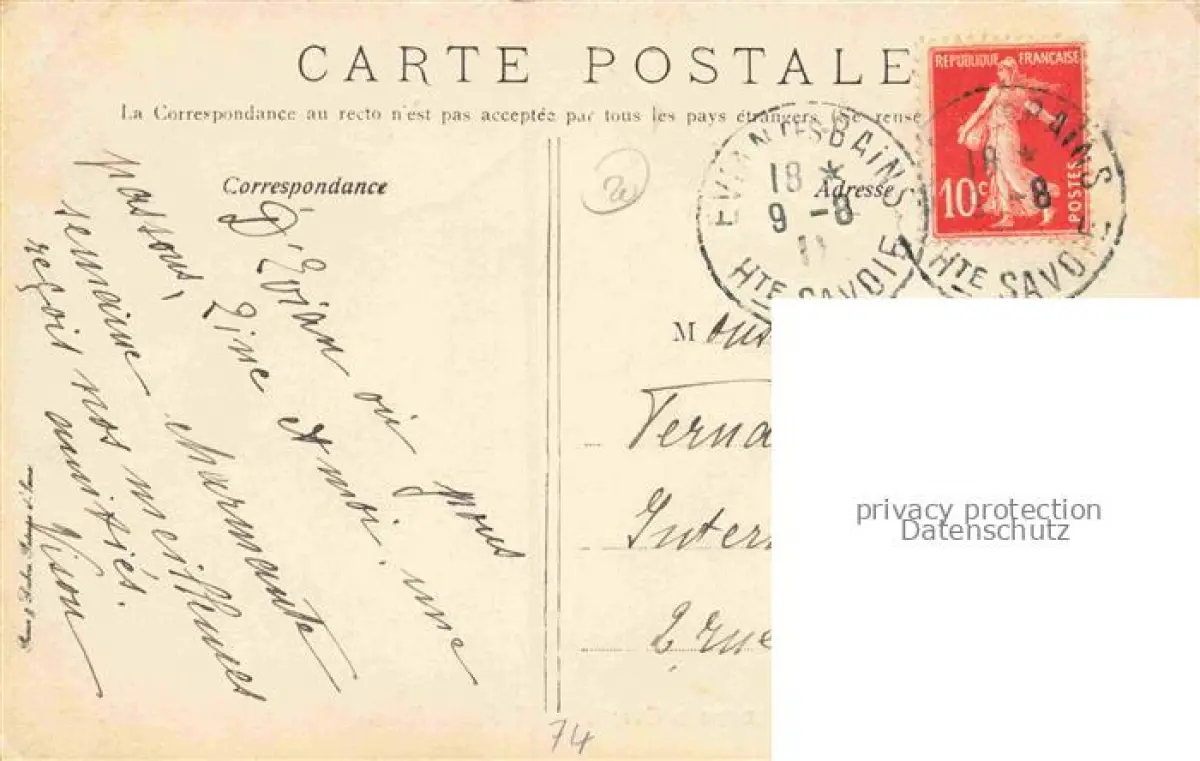 CARTE POSTALE
La Correspondance au recto n'est pas acceptée par tous les pays étrangers (Se rense
Correspondance
Adresse
REPUBLIQUE FRANÇAISE
10c POSTES
EVIAN LES BAINS
18 *
9 -8
11
HTE SAVOIE
BAINS
18 *
-8
HTE SAVOIE
D'Evian où nous
passons, Line et moi, une
semaine charmante
reçois nos meilleures
amitiés.
M
Interi
2 rue
74
privacy protection
Datenschutz